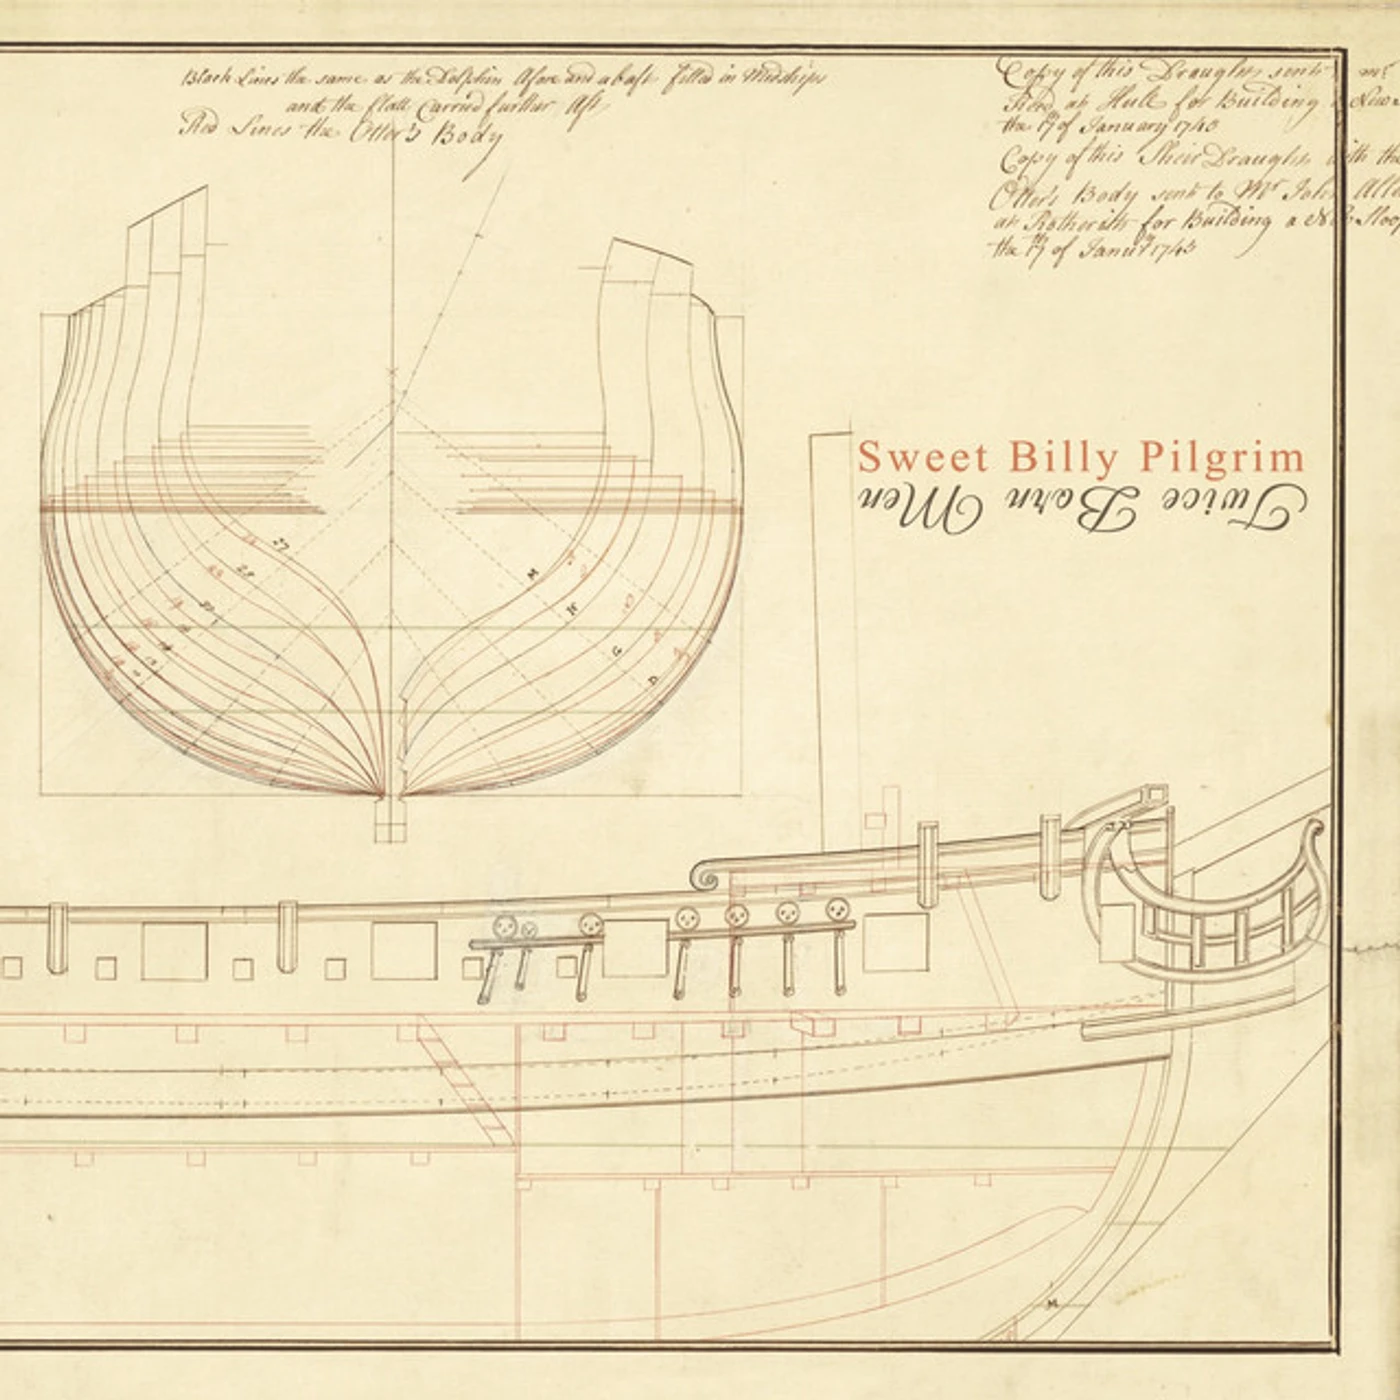 Black Lines the same as the Dolphin Afore and abaft filled in Midships
and the flatt Carried further Aft
Red Lines the Otter's Body
Copy of this Draught sent mr
Reed at Hull for Building a New
the 17 of January 1743
Copy of this Sheir Draught with the
Otter's Body sent to Mr John Alle
at Rotherith for Building a Sloop
the 17th of Janu 1743
Sweet Billy Pilgrim
Twice Born Men
27
M
H
G
D
M